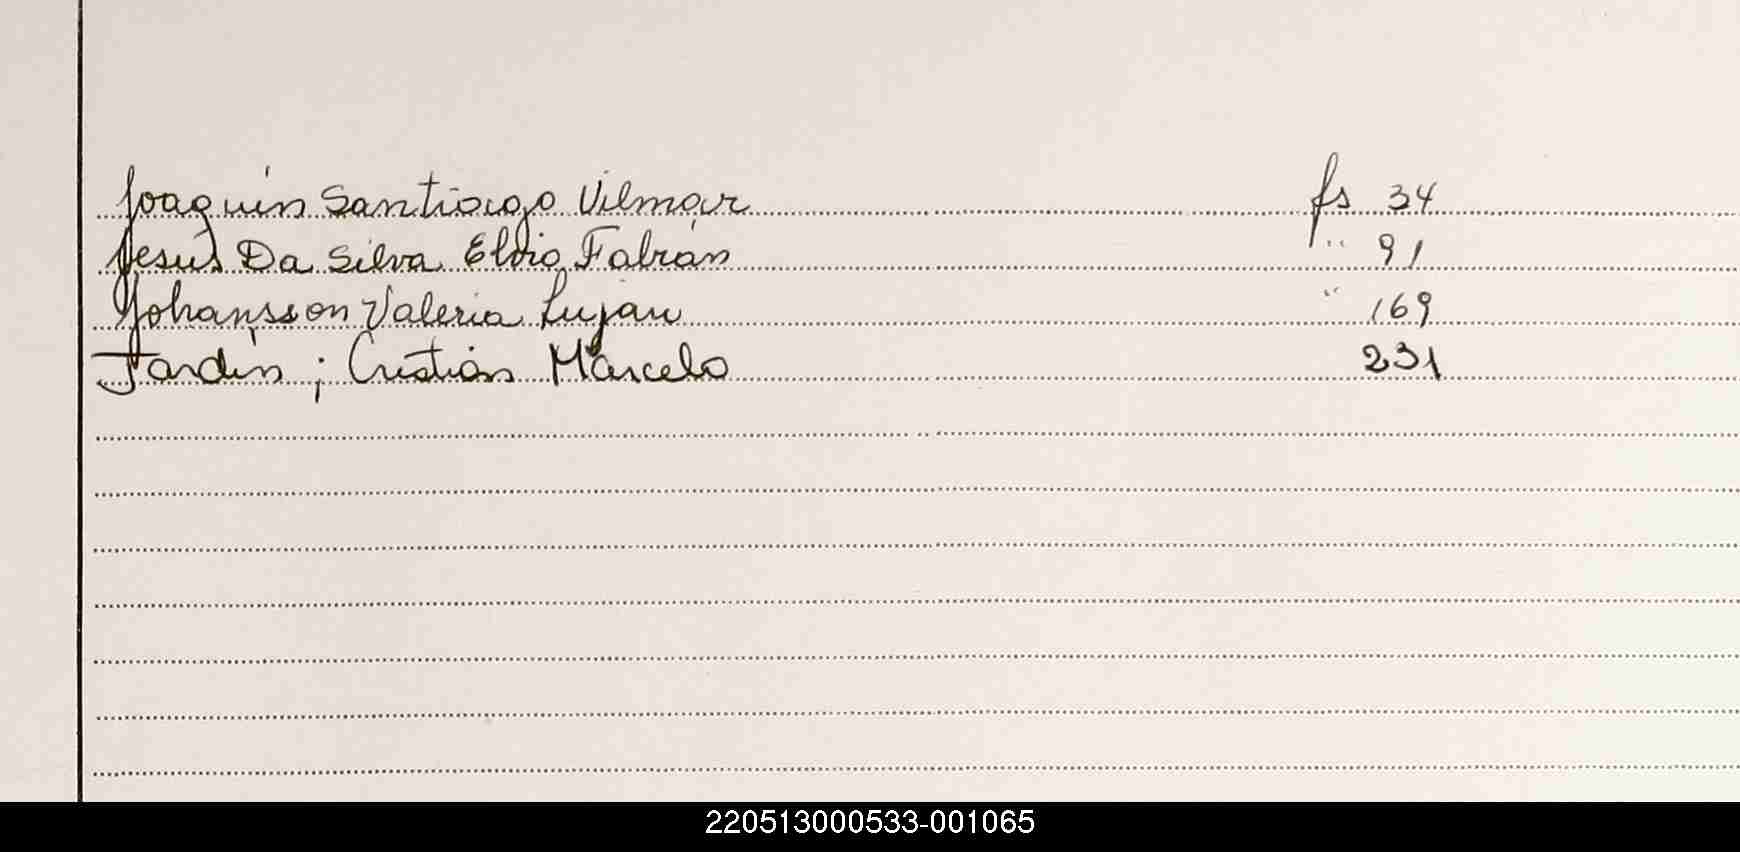 Joaquín Santiago Vilmar fs 34
Jesús Da Silva Elvio Fabián " 91
Johansson Valeria Luján " 169
Jardín ; Cristián Marcelo 231
220513000533-001065